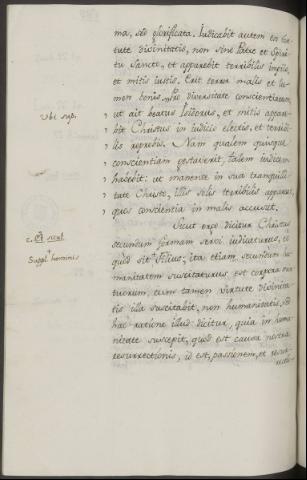 ma, sed glorificata. Iudicabit autem ex vir-
tute divinitatis, non sine Patre et Spiri-
tu Sancto, et apparebit terribilis impiis,
et mitis iustis. Erit terror malis et lu-
men bonis. Pro diversitate conscientiarum,
ut ait beatus Isidorus, et mitis appare-
bit Christus in iudicio electis, et terribi-
lis reprobis. Nam qualem quisque
conscientiam gestaverit, talem iudicem
habebit: ut manente in sua tranquilli-
tate Christo, illis solis terribilis appareat,
quos conscientia in malis accusat.
Sicut ergo dicitur Christus
secundum formam servi iudicaturus, et
quod sit Filius; ita etiam, secundum hu-
manitatem suscitaturus est corpora mor-
tuorum, cum tamen virtute divinita-
tis illa suscitabit, non humanitatis, sed
hac ratione illud dicitur, quia in huma-
nitate suscepit, quod est causa nostrae
resurrectionis, id est, passionem, et resur-
Ubi sup.
c. Et sicut
Suppl. hominis